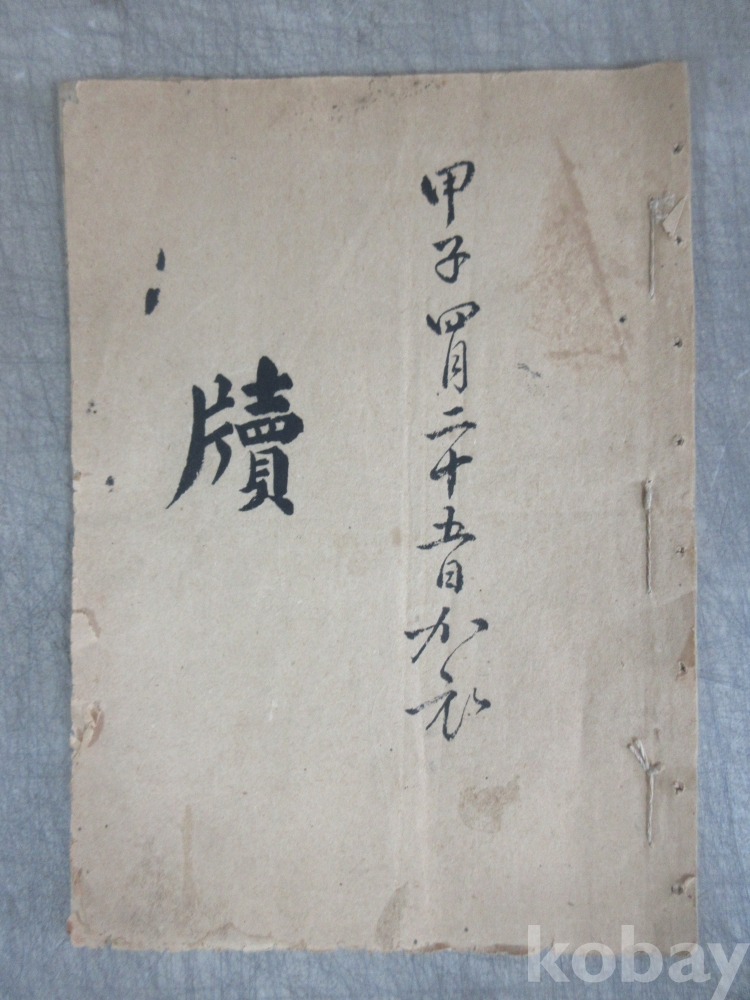 甲子四月二十五日加衣
牘
kobay